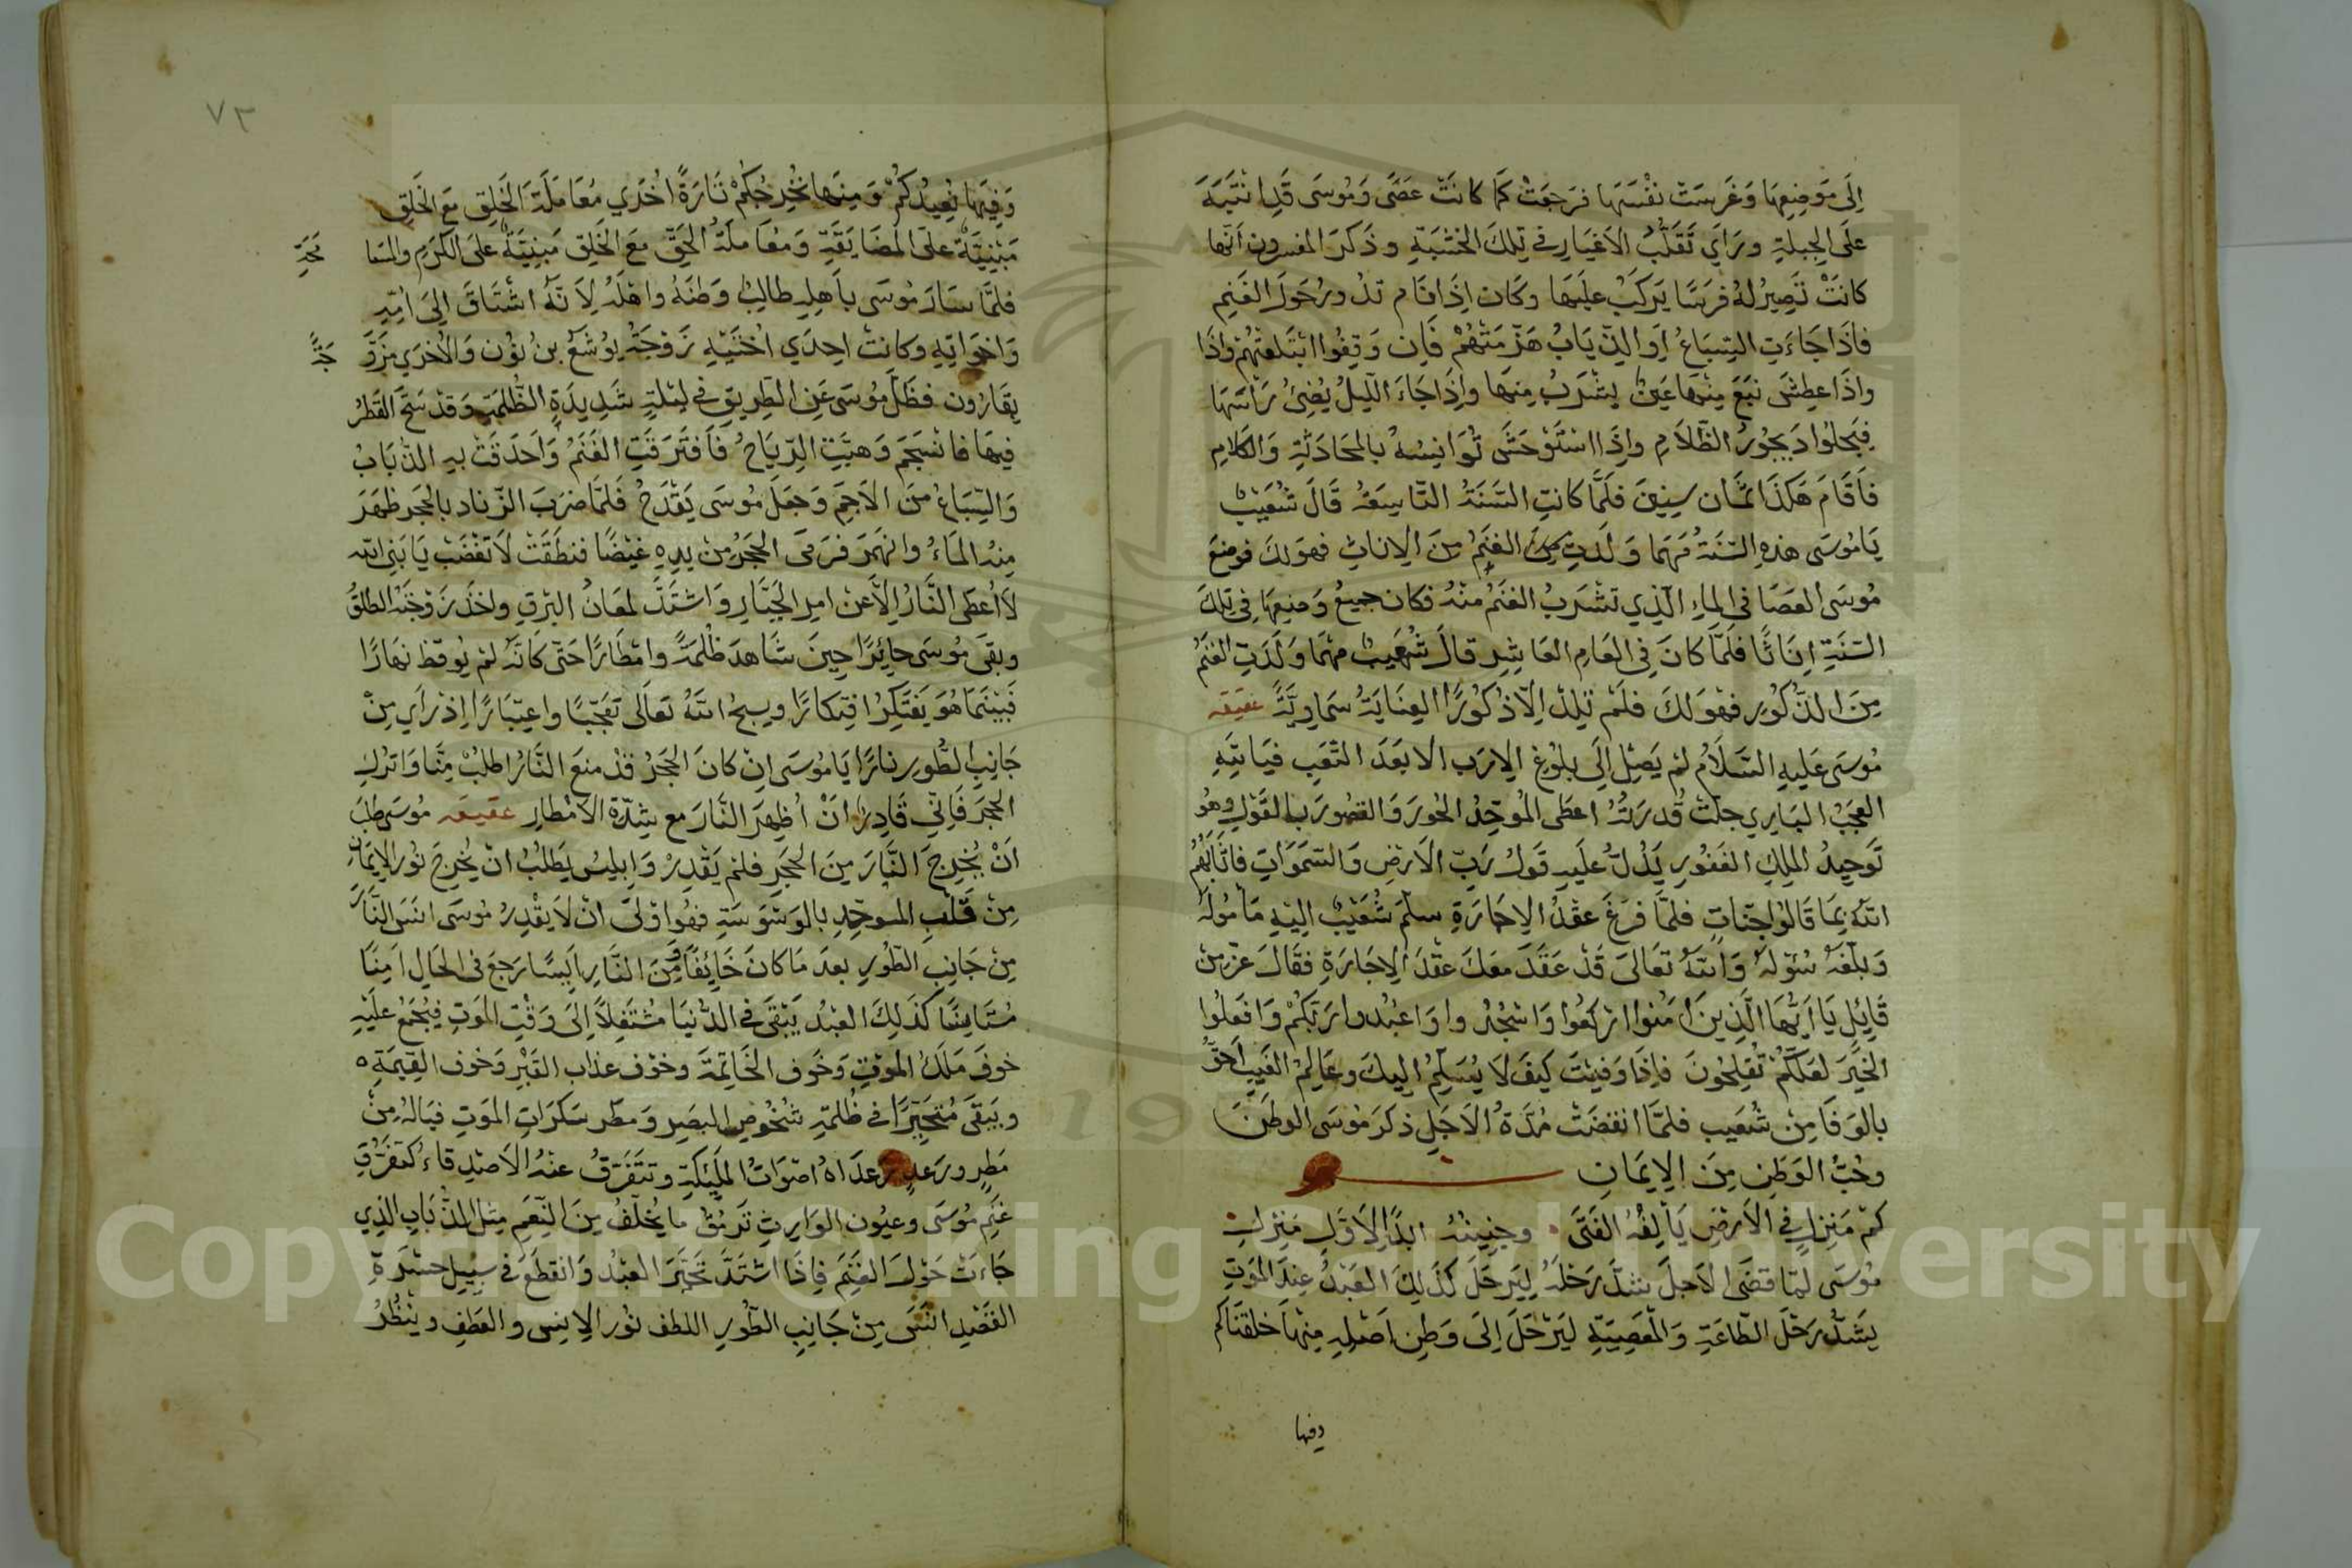 اِلَى مَوضِعِهَا وَغَرسَتْ نفْسَهَا فرَجعَتْ كَمَا كَانَتْ عَصًى وَمُوسَى قَدِ انتَبَهَ
علَى الجِبلةِ ورَاَي تَقَلُّبَ الاَغيَارِ في تِلكَ الخشَبَةِ وذَكرَ المفسرون اَنَّهَا
كانَتْ تَصِيرُ لهُ فرَسًا يَركَبُ عليَهَا وكَان اِذَا قَام تدُورُ حَولَ الغَنِم
فَاذَا جَاءَتِ السِبَاعُ اَوِ الذِّيَابُ هَزّمَتْهُمْ فَاِن وَقِفُوا ابْتَلعَتْهُمْ واذَا
واذَا عطِشَ نبَعَ مِنْهَا عَينٌ يشْرَبُ مِنهَا واِذَا جَاءَ اللّيلُ يُضِئُ رَأسَهَا
فيَجلُوا دَيجُورَ الظّلاَمِ واِذَا اسْتَوْحَشَ تُوَانِسُهُ بالمحَادَثةِ وَالكلامِ
فاَقَامَ هَكذَا ثمَان سِنِينَ فلَمَّا كانتِ السَنَةُ التّاسِعَةُ قَالَ شُعَيْبٌ
يَا مُوسَى هذهِ السّنَةُ مَهمَا وَلَدتِ الغنَمُ مِنَ الاِناثِ فهوَ لكَ فوضعَ
مُوسَى العصَا في الماءِ الّذِي تشْرَبُ الغنَمُ منْهُ فكان جميعُ وَضعِهَا فِي تِلكَ
السَنَةِ اِنَاثًا فلَمَّا كَانَ فِي العَامِ العَاشِرِ قالَ شُعَيبٌ مهْمَا وَلَدَتِ الغنَمُ
مِنَ الذُّكُورِ فهْوَ لكَ فلَمْ تَلِدْ اِلاّ ذُكُورًا العِنَايَةُ سَمَاوِيَّةٌ عقيقه
مُوسَى عَليهِ السّلاَمُ لمْ يَصِلْ اِلَى بلوُغِ الاِرَبِ الا بَعدَ التّعَبِ فيَا للهِ
العجَبُ البَارِي جلّتْ قُدرَتُهُ اعطَى المُوحِّدُ الحُورَ وَالقصُورَ بالقَوْلِ وهُو
تَوحِيدُ الملِكِ الغَفُورِ يَدُلُّ علَيهِ قَولُ رَبِّ الاَرضِ وَالسّمَوَاتِ فاَثَابَهُمُ
اللهُ بِمَا قَالُوا جَنّاتٍ فلمَّا فرَغَ عقْدُ الاِجَارَةِ سلّمَ شُعَيْبٌ اليْهِ مَأمُولَهُ
وَبلّغَهُ سُؤلَهُ وَاللهُ تَعَالَى قَدْ عَقدَ معَكَ عقْدَ الاِجَارَةِ فقَالَ عزّ مِنْ
قَايِلٍ يَا اَيُّهَا الَّذِينَ اَمَنُوا ارْكعُوا وَاسْجُدُوا وَاعبُدوا رَبّكُمْ وَافعَلُوا
الخَيرَ لعَلّكُمْ تُفلِحُونَ فاِذَا وَفَيْتَ كيفَ لاَ يُسَلِّمُ اليكَ وعَالِمُ الغَيبِ اَحَقُّ
بالوَفَا مِنْ شُعَيبٍ فلمَّا انقضَتْ مُدّةُ الاَجَلِ ذكرَ مُوسَى الوطَنَ
وحُبُّ الوَطنِ مِنَ الاِيمَانِ
كمْ مَنزِلٍ في الاَرضِ يَألفُهُ الفَتَى وحَنِينُهُ ابدًا لاِوّلِ مَنزِلِ
مُوسَى لمّا قضَى الاَجلَ شدَّ رَحْلَهُ ليَرحَلَ كذَلِكَ العَبْدُ عِندَ المَوتِ
يشُدُّ رَحْلَ الطّاعَةِ وَالمعْصِيَةِ ليَرْحَلَ اِلَى وَطنِ اَصْلِهِ مِنهَا خلقنَاكم
وفيها
٧٣
وَفيهَا نُعِيدُكُمْ وَمِنهَا نُخْرِجُكمْ تَارَةً اُخْرَي مُعَامَلَةُ الخَلِقِ مَعَ الخَلقِ
مَبْنِيّةٌ علَى المُضَايَقَةِ وَمعَاملَةُ الحَقِّ معَ الخَلقِ مَبنِيّةٌ عَلَى الكَرمِ والمسَا
محَةِ
فلمَّا سَارَ مُوسَى باَهلِهِ طالِبُ وَطنَهُ واهْلَهُ لاَنّهُ اشْتَاقَ اِلَى اُمِّهِ
وَاخوَاتِهِ وكانتْ احِدَي اُختَيْهِ زَوْجَةَ يوُشَعَ بنِ نوُن وَالاُخرَي مزَوَّ
جَةً
بقَارُون فظَلَّ مُوسَى عَنِ الطّرِيقِ في ليْلةٍ شَدِيدَةِ الظّلمَةِ وَقدْ سَحَّ القَطرُ
فيهَا فانسَجَمَ وَهبّتِ الرِّيَاحُ فَافتَرَقَتِ الغَنَمُ وَاَحدَقَتْ بهِ الذّيَابُ
وَالسّبَاعُ مِنَ الاَجَمِ وَجعَلَ مُوسَى يَقْدَحُ فَلمَّا ضرَبَ الزّناد بالحجَر ظهَرَ
مِنهُ المَاءُ وانهمَرَ فرَمَى الحجَرُ مِنْ يدِهِ غيْضًا فنطَقَتْ لاَ تغْضَبْ يَا بَنِي الله
لاَ اُعطى النَّارُ الاَّ عَنْ امرِ الجَبَّارِ وَاشتَدَّ لمعَانُ البَرقِ واخذَ زَوْجَتَهُ الطلقُ
وبقَى مُوسَى حائِرًا حِينَ شَاهدَ ظُلمَةً وامْطَارًا حَتّى كَانّهُ لمْ يُوقظ نهَارًا
فَبَيْنَمَا هُوَ يَفتَكِرُ افتِكارًا ويسبحُ اللهُ تعَالَى تعَجّبًا واعتِبَارًا اِذْ رَاَي مِنْ
جَانِبِ الطُّورِ نارًا يَا مُوسَى اِنْ كانَ الحجَرُ قدْ منعَ النَّارُ اطلُبْ مِنَّا وَاترُكِ
الحجَرَ فَاِنّي قَادِرٌ اَنْ اُظهِرَ النَّارَ مع شِدّة الاَمْطارِ عقيقه مُوسَى طلبَ
اَنْ يُخْرِجَ النَّارَ مِنَ الحجَرِ فلمْ يَقْدِرْ وَابليسُ يَطلُبُ انْ يُخرِجَ نوُر الاِيمَانِ
مِنْ قَلْبِ الموحّدِ بالوَسْوَسَةِ فهُوا وْلىَ انْ لاَ يقْدِرُ مُوسَى انسَ النَّارَ
مِنْ جَانِبِ الطّوُرِ بعدَ مَا كانَ خَايِفًا مِنَ النَّارِ اَيسًا رَجعَ في الحَالِ امِنًا
مُسْتَانِسًا كذَلِكَ العبْدُ يَبْقَى فى الدّنيَا مُشْتَغِلاً اِلَى وَقْتِ المَوتِ فيُجْمَعُ علَيْهِ
خوفَ مَلكُ الموْتِ وَخَوف الخَاتِمَة وخوْف عذاب القَبْرِ وَخوف القِيمَةِ ه
ويَبْقَى مُتَحيّرًا في ظُلمَةِ شُخُوصِ البصَرِ وَمطرِ سَكرَاتِ المَوتِ فيَا لهُ مِنْ
مَطرٍ ورَعدٍ رعدَاهُ اصْوَاتُ الملئكةِ وتتَفَرّقُ عنْهُ الاَصْدِقاءُ كتَفَرّقِ
غَنمِ مُوسَى وعيُون الوَارِثِ تَرمُقُ مَا يُخَلّفُ مِنَ النّعَمِ مِثل الذّيَابِ الذِي
جَاءَتْ حَوْلَ الغنَمِ فاِذَا اشتَدَّ تَحَيّرَ العبْدُ وَانقطعَ في سبِيل حَسْرَةِ
القَصْدِ انسَ مِنْ جَانِبِ الطّوُرِ اللطف نوُر الاِنسِ والعَطفِ وينْظُرُ
Copyright © King Saud University
19